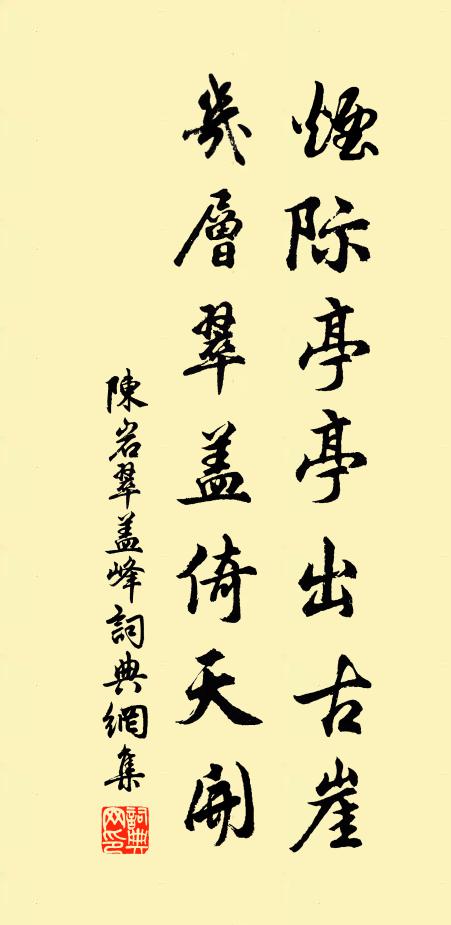 煙际亭亭出古崖
几層翠盖倚天開
陳岩翠盖峰詞典網集
詞典网印